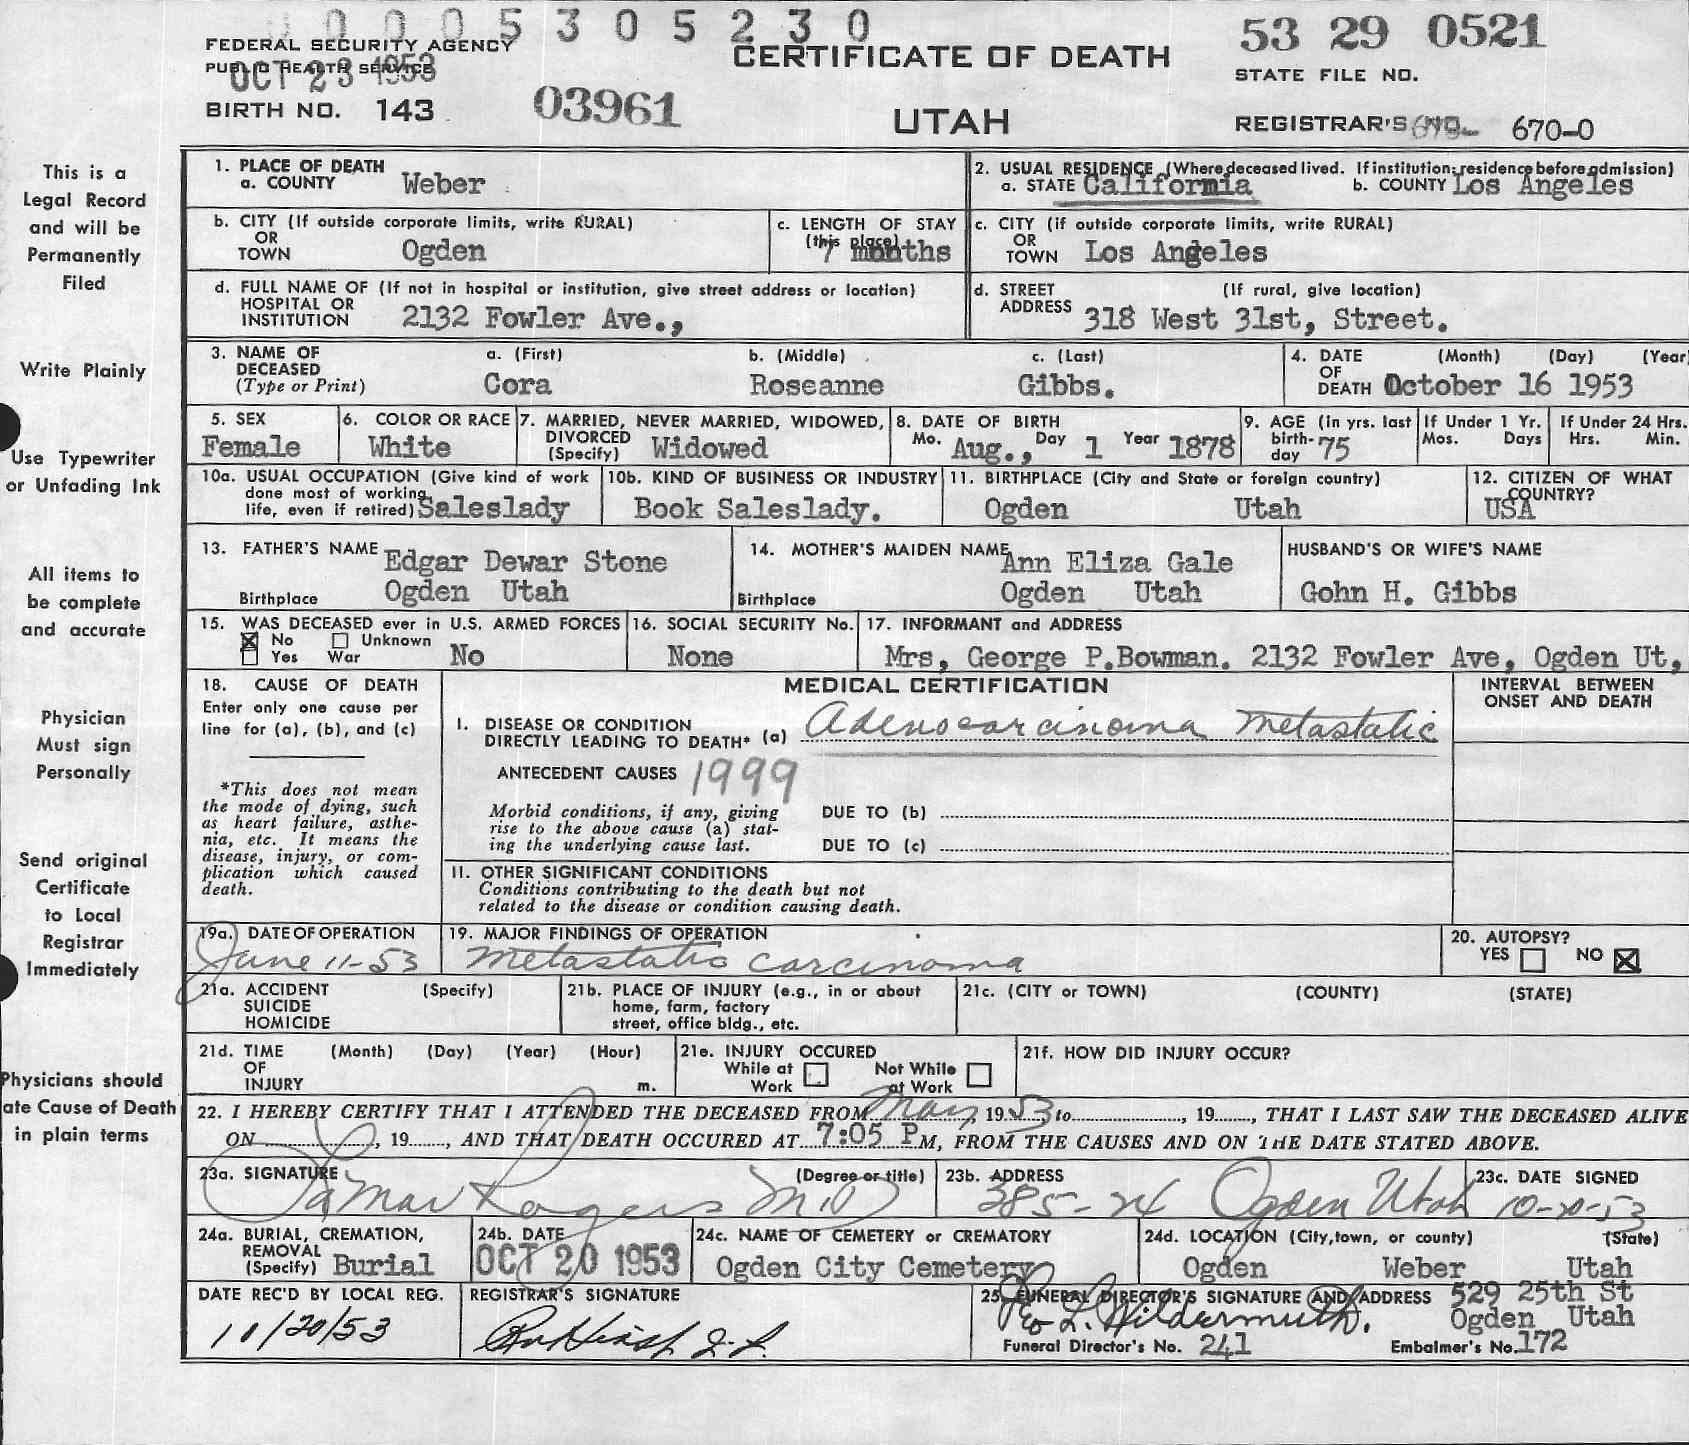 0005305230
53 29 0521
FEDERAL SECURITY AGENCY
PUBLIC HEALTH SERVICE
OCT 23 1953
CERTIFICATE OF DEATH
STATE FILE NO.
BIRTH NO. 143
03961
UTAH
REGISTRAR'S NO. 670-0
This is a
Legal Record
and will be
Permanently
Filed
Write Plainly
Use Typewriter
or Unfading Ink
All items to
be complete
and accurate
Physician
Must sign
Personally
Send original
Certificate
to Local
Registrar
Immediately
Physicians should
ate Cause of Death
in plain terms
1. PLACE OF DEATH
a. COUNTY Weber
2. USUAL RESIDENCE (Where deceased lived. If institution: residence before admission)
a. STATE California b. COUNTY Los Angeles
b. CITY (If outside corporate limits, write RURAL)
OR
TOWN Ogden
c. LENGTH OF STAY
(this place)
7 months
c. CITY (if outside corporate limits, write RURAL)
OR
TOWN Los Angeles
d. FULL NAME OF (If not in hospital or institution, give street address or location)
HOSPITAL OR
INSTITUTION 2132 Fowler Ave.,
d. STREET (If rural, give location)
ADDRESS 318 West 31st, Street.
3. NAME OF
DECEASED
(Type or Print)
a. (First) b. (Middle) c. (Last)
Cora Roseanne Gibbs.
4. DATE (Month) (Day) (Year)
OF
DEATH October 16 1953
5. SEX
Female
6. COLOR OR RACE
White
7. MARRIED, NEVER MARRIED, WIDOWED,
DIVORCED
(Specify) Widowed
8. DATE OF BIRTH
Mo. Aug., Day 1 Year 1878
9. AGE (in yrs. last
birth-
day 75
If Under 1 Yr.
Mos. Days
If Under 24 Hrs.
Hrs. Min.
10a. USUAL OCCUPATION (Give kind of work
done most of working
life, even if retired) Saleslady
10b. KIND OF BUSINESS OR INDUSTRY
Book Saleslady.
11. BIRTHPLACE (City and State or foreign country)
Ogden Utah
12. CITIZEN OF WHAT
COUNTRY?
USA
13. FATHER'S NAME Edgar Dewar Stone
Birthplace Ogden Utah
14. MOTHER'S MAIDEN NAME Ann Eliza Gale
Birthplace Ogden Utah
HUSBAND'S OR WIFE'S NAME
Gohn H. Gibbs
15. WAS DECEASED ever in U.S. ARMED FORCES
No Unknown
Yes War No
16. SOCIAL SECURITY No.
None
17. INFORMANT and ADDRESS
Mrs, George P.Bowman. 2132 Fowler Ave, Ogden Ut,
18. CAUSE OF DEATH
Enter only one cause per
line for (a), (b), and (c)
*This does not mean
the mode of dying, such
as heart failure, asthe-
nia, etc. It means the
disease, injury, or com-
plication which caused
death.
MEDICAL CERTIFICATION
INTERVAL BETWEEN
ONSET AND DEATH
I. DISEASE OR CONDITION
DIRECTLY LEADING TO DEATH* (a) Adenocarcinoma Metastatic
ANTECEDENT CAUSES 1999
Morbid conditions, if any, giving
rise to the above cause (a) stat-
ing the underlying cause last.
DUE TO (b)
DUE TO (c)
11. OTHER SIGNIFICANT CONDITIONS
Conditions contributing to the death but not
related to the disease or condition causing death.
19a. DATE OF OPERATION
June 11-53
19. MAJOR FINDINGS OF OPERATION
Metastatic carcinoma
20. AUTOPSY?
YES NO
21a. ACCIDENT (Specify)
SUICIDE
HOMICIDE
21b. PLACE OF INJURY (e.g., in or about
home, farm, factory
street, office bldg., etc.
21c. (CITY or TOWN) (COUNTY) (STATE)
21d. TIME (Month) (Day) (Year) (Hour)
OF
INJURY m.
21e. INJURY OCCURED
While at
Work
Not While
at Work
21f. HOW DID INJURY OCCUR?
22. I HEREBY CERTIFY THAT I ATTENDED THE DECEASED FROM May, 1953 to , 19 , THAT I LAST SAW THE DECEASED ALIVE
ON , 19 , AND THAT DEATH OCCURED AT 7:05 P M, FROM THE CAUSES AND ON THE DATE STATED ABOVE.
23a. SIGNATURE (Degree or title)
LaMar Rogers M.D
23b. ADDRESS
385-24 Ogden Utah
23c. DATE SIGNED
10-20-53
24a. BURIAL, CREMATION,
REMOVAL
(Specify) Burial
24b. DATE
OCT 20 1953
24c. NAME OF CEMETERY or CREMATORY
Ogden City Cemetery
24d. LOCATION (City, town, or county) (State)
Ogden Weber Utah
DATE REC'D BY LOCAL REG.
10/20/53
REGISTRAR'S SIGNATURE
25. FUNERAL DIRECTOR'S SIGNATURE AND ADDRESS 529 25th St
Geo L. Wildermuth. Ogden Utah
Funeral Director's No. 241 Embalmer's No. 172